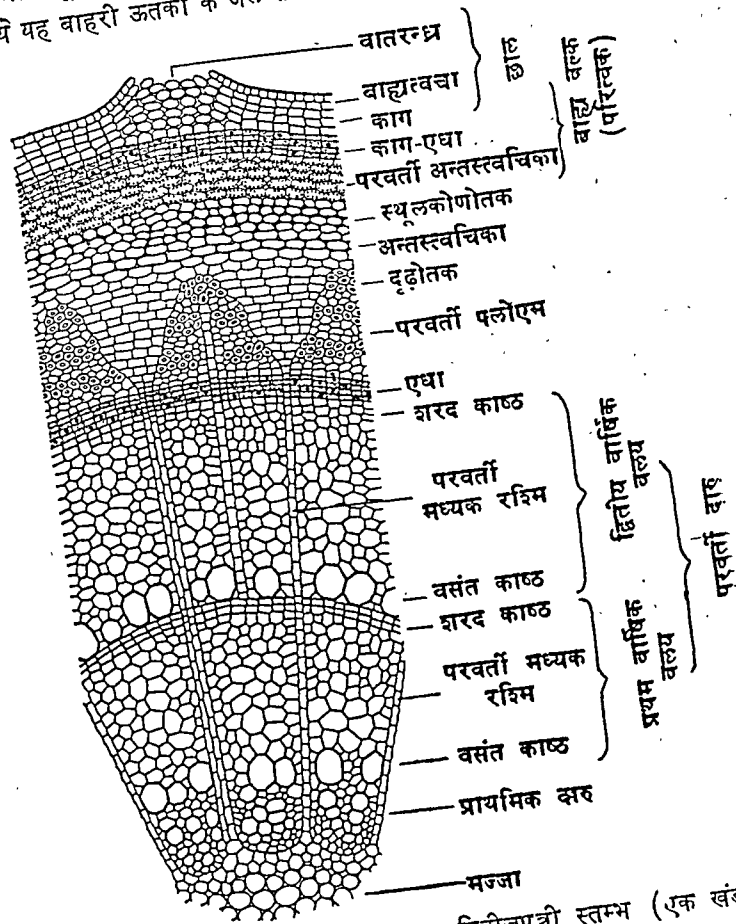 यह बाहरी ऊतकों के
वातरन्ध्र
वाह्यत्वचा
काग
काग-एधा
परवर्ती अन्तस्त्वचिका
स्थूलकोणोतक
अन्तस्त्वचिका
दृढ़ोतक
परवर्ती फ्लोएम
एधा
शरद काष्ठ
परवर्ती
मध्यक रश्मि
वसंत काष्ठ
शरद काष्ठ
परवर्ती मध्यक
रश्मि
वसंत काष्ठ
प्राथमिक दारु
मज्जा
छाल
वाह्य वल्क
(परित्वक)
द्वितीय वार्षिक
वलय
प्रथम वार्षिक
वलय
परवर्ती दारु
स्तम्भ (एक खंड